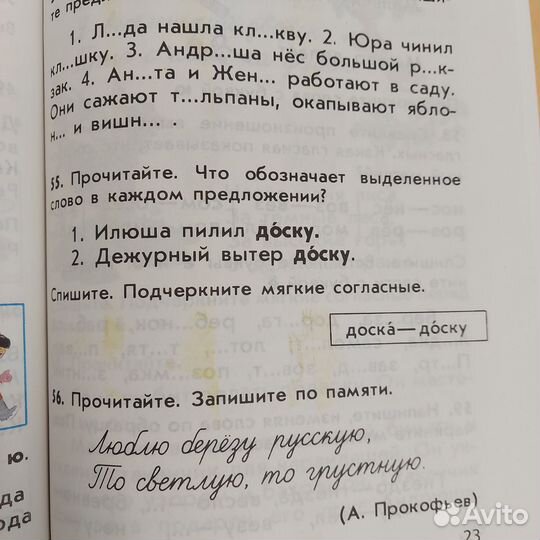 те предл
1. Л...да нашла кл...кву. 2. Юра чинил
кл...шку. 3. Андр...ша нёс большой р...к-
зак. 4. Ан...та и Жен... работают в саду.
Они сажают т...льпаны, окапывают ябло-
н... и вишн... .
55. Прочитайте. Что обозначает выделенное
слово в каждом предложении?
1. Илюша пилил до́ску.
2. Дежурный вытер до́ску.
Спишите. Подчеркните мягкие согласные.
доска́—до́ску
56. Прочитайте. Запишите по памяти.
Люблю берёзу русскую,
То светлую, то грустную.
(А. Прокофьев)
23
ю.
да
ода
Avito